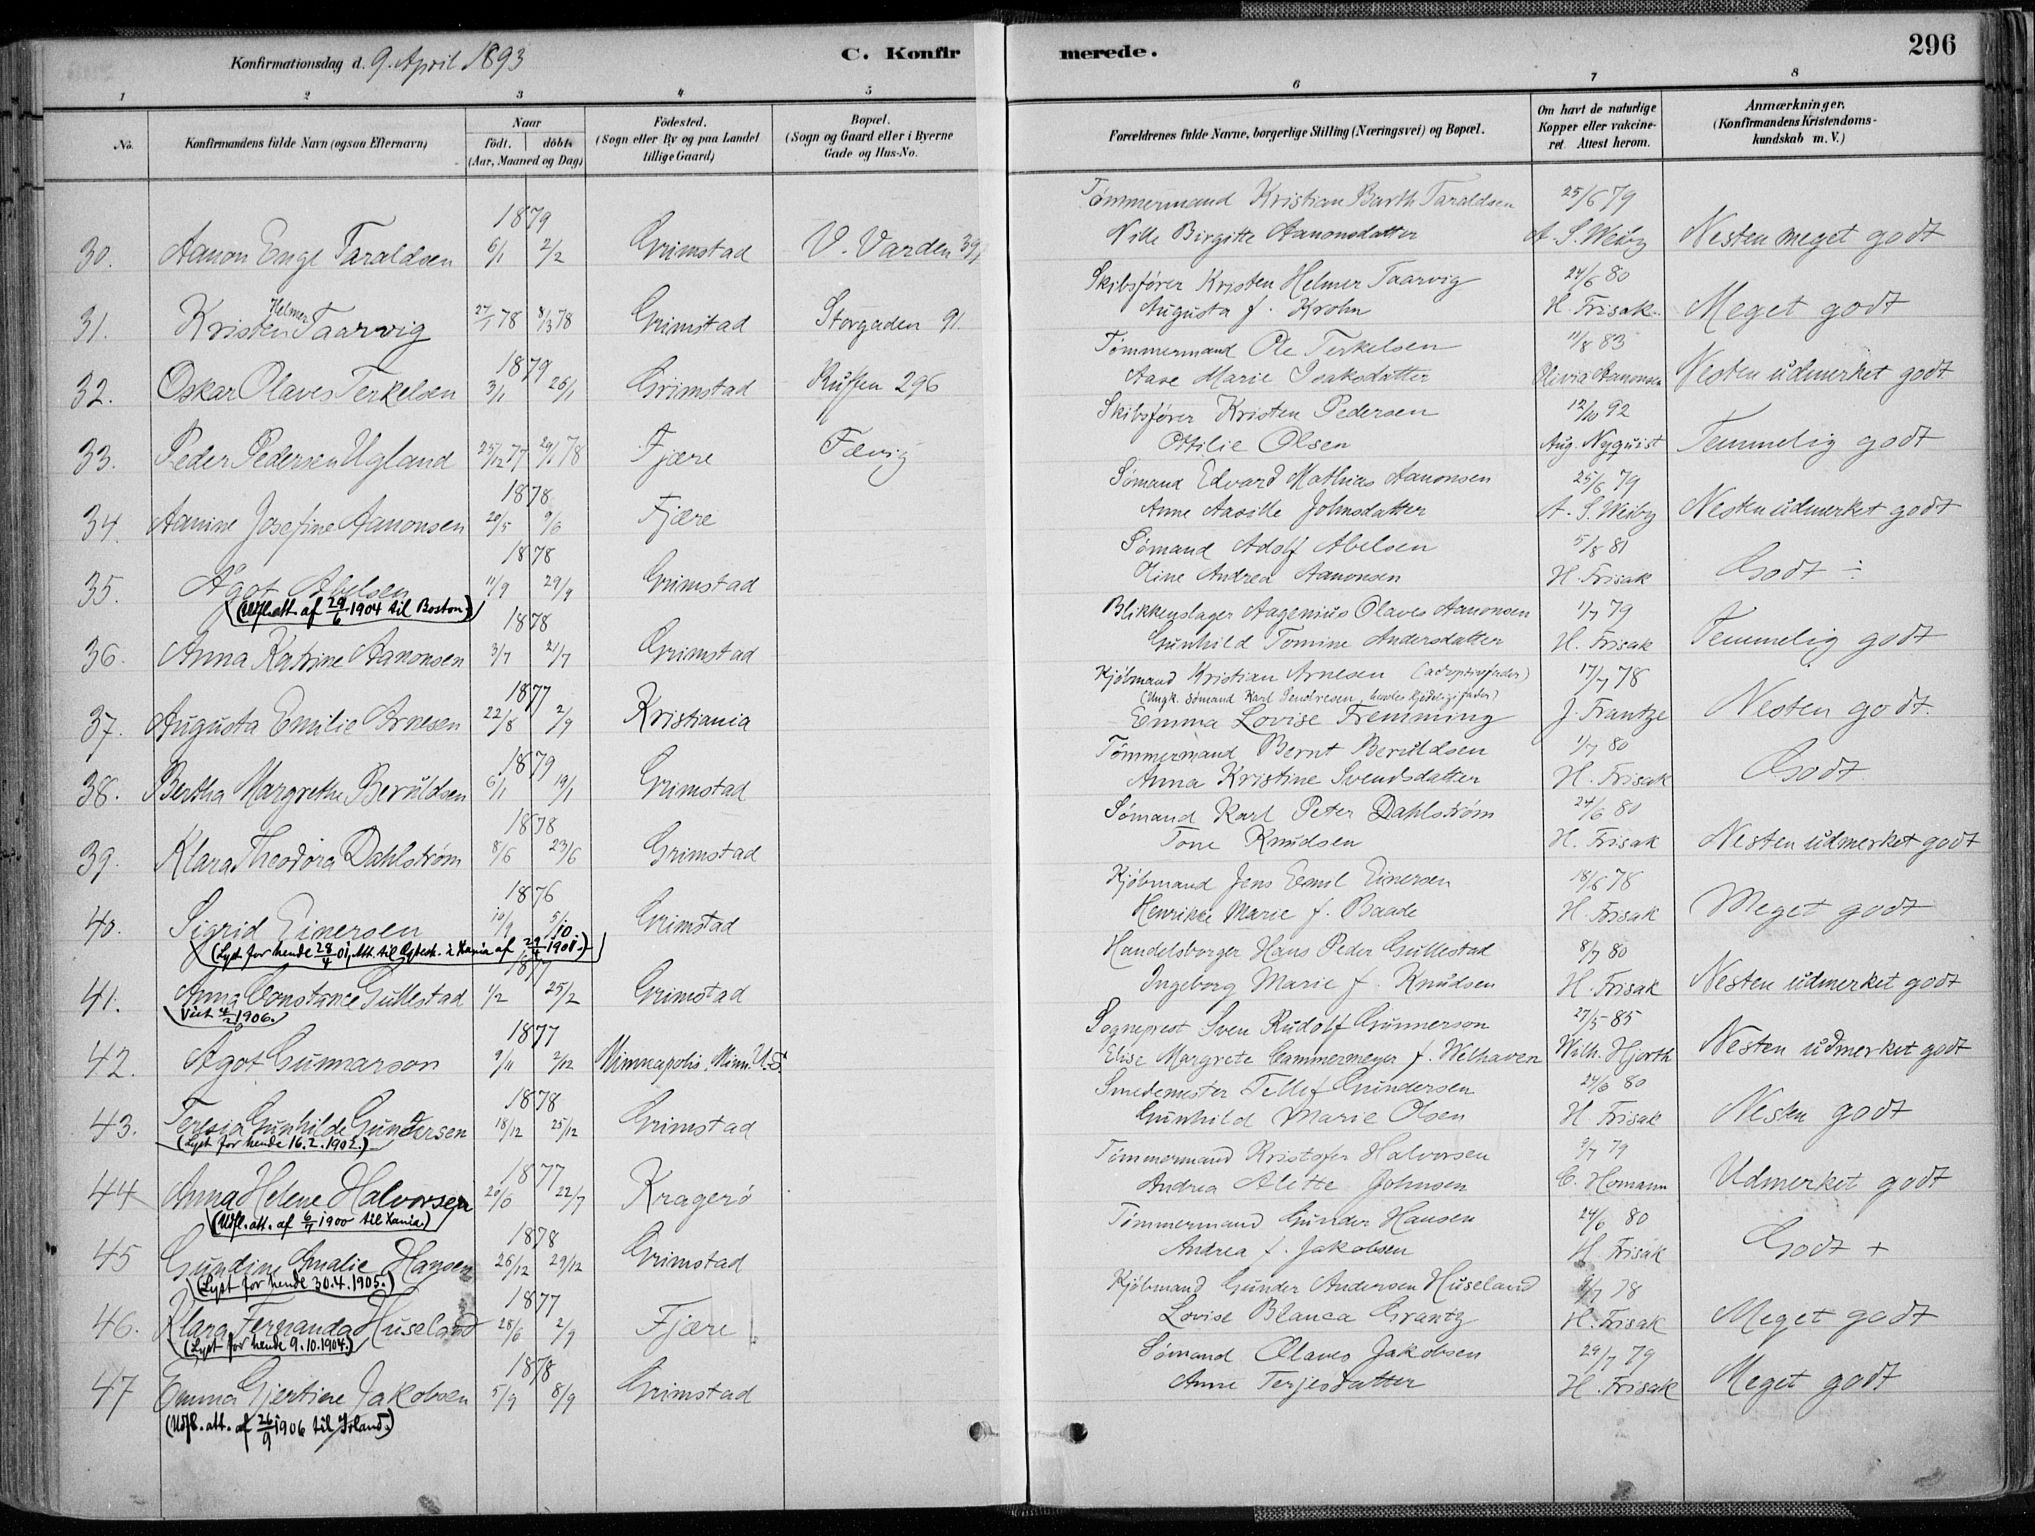 Konfirmationsdag d. 9. April 1893
C. Konfirmerede.
296
1 2 3 4 5 6 7 8
No.
Konfirmandens fulde Navn (ogsaa Efternavn)
Naar
født. døbt.
(Aar, Maaned og Dag)
Fødested.
(Sogn eller By og paa Landet
tillige Gaard)
Bopæl.
(Sogn og Gaard eller i Byerne
Gade og Hus-No.
Forældrenes fulde Navne, borgerlige Stilling (Næringsvei) og Bopæl.
Om havt de naturlige
Kopper eller vakcine-
ret. Attest herom.
Anmærkninger.
(Konfirmandens Kristendoms-
kundskab m. V.)
1879 Tømmermand Kristian Barth Taraldsen 25/6 79
30. Aanon Enge Taraldsen 6/1 2/2 Grimstad V. Varden 39 Nille Birgitte Aanonsdatter A. S. Weiby Nesten meget godt
Skibsfører Kristen Helmer Taarvig 24/6 80
31. Kristen Helmer Taarvig 27/1 78 8/3 78 Grimstad Storgaden 91. Augusta f. Krohn H. Frisak. Meget godt
1879 Tømmermand Ole Terkelsen 11/8 83
32. Oskar Olaves Terkelsen 3/1 26/1 Grimstad Kuffen 296 Aase Marie Isaksdatter Olivia Aanonsen Nesten udmerket godt
Skibsfører Kristen Pedersen 12/10 92
33. Peder Pedersen Ugland 25/12 77 29/1 78 Fjære Fævig Ottilie Olsen Aug. Nyquist Temmelig godt
1878 Sømand Edvard Mathias Aanonsen 25/6 79
34. Aanine Josefine Aanonsen 20/5 9/6 Fjære Anne Aasille Johnsdatter A. S. Weiby Nesten udmerket godt
1878 Sømand Adolf Abelsen 5/8 81
35. Ågot Abelsen 11/9 29/9 Grimstad Tine Andrea Aanonsen H. Frisak Godt ÷
(Utfl. att. af 29/6 1904 til Boston.)
1878 Blikkenslager Aagenius Olaves Aanonsen 1/7 79
36. Anna Katrine Aanonsen 3/7 21/7 Grimstad Gunhild Tomine Andersdatter H. Frisak Temmelig godt
1877 Kjøbmand Kristian Arnesen (adoptivfader) 17/7 78
(Ungk. Sømand Karl hendes kjødelige fader)
37. Augusta Emilie Arnesen 22/8 2/9 Kristiania Emma Lovise Fremming J. Frantze Nesten godt.
1879 Tømmermand Bernt Beruldsen 1/7 80
38. Bertha Margrethe Beruldsen 6/1 19/1 Grimstad Anna Kristine Svendsdatter H. Frisak Godt
1878 Sømand Karl Peter Dahlstrøm 24/6 80
39. Klara Theodora Dahlstrøm 8/6 23/6 Grimstad Tone Knudsen H. Frisak Nesten udmerket godt
1876 Kjøbmand Jens Emil Einersen 18/6 78
40. Sigrid Einersen 10/9 5/10. Grimstad Henrikke Marie f. Baade H. Frisak Meget godt
(Lyst for hende 28/4 01, Att. til i Xania af 29/4 1901.)
1877 Handelsborger Hans Peder Gullestad 8/7 80
41. Anna Constance Gullestad 1/2 25/2 Grimstad Ingeborg Marie f. Knudsen H. Frisak Nesten udmerket godt
Viet 4/2 1906.
1877 Sogneprest Sven Rudolf Gunnerson 27/5 85
42. Ågot Gunnarson 9/11 2/12 Minneapolis, Minn. U.S. Elise Margrete Cammermeyer f. Welhaven Wilh. Hjorth Nesten udmerket godt
1878 Smedemester Tellef Gundersen 24/6 80
43. Teresia Gunhilde Gundersen 18/12 25/12 Grimstad Gunhild Marie Olsen H Frisak Nesten godt
(Lyst for hende 16.2.1902.)
1877 Tømmermand Kristofer Halvorsen 9/7 79
44 Anna Helene Halvorsen 20/6 22/7 Kragerø Andrea Alette Johnsen C. Homann Udmerket godt
(Utfl. att. af 6/7 1900 til Xania.)
1878 Tømmermand Gunder Hansen 24/6 80
45 Gundine Amalie Hansen 26/12 29/12 Grimstad Andrea f. Jakobsen H. Frisak Godt +
(Lyst for hende 30.4.1905.)
1877 Kjøbmand Gunder Andersen Huseland 9/7 78
46. Klara Fernanda Huseland 28/6 2/9 Fjære Lovise Blanca Crantz H. Frisak Meget godt
(Lyst for hende 9.10.1904.)
1878 Sømand Olaves Jakobsen 29/7 79
47 Emma Gjertine Jakobsen 5/9 8/9 Grimstad Anne Terjesdatter H. Frisak Meget godt
(Utfl. att. af 26/9 1906 til Irland.)